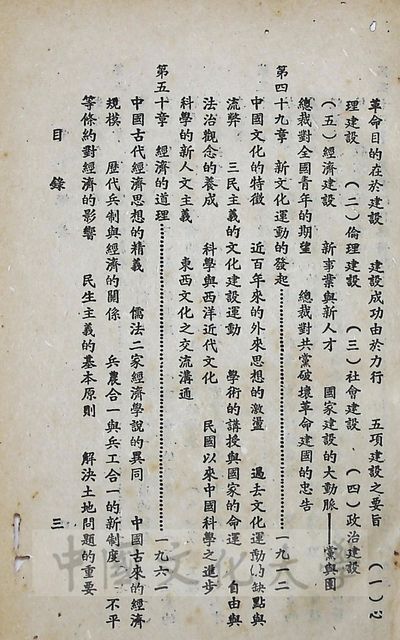 革命目的在於建設　建設成功由於力行　五項建設之要旨　（一）心
理建設　（二）倫理建設　（三）社會建設　（四）政治建設
（五）經濟建設　新事業與新人才　國家建設的大動脈——黨與團
總裁對全國青年的期望　總裁對共黨破壞革命建國的忠告
第四十九章　新文化運動的發起…………一九一二
中國文化的特徵　近百年來的外來思想的激盪　過去文化運動的缺點與
流弊　三民主義的文化建設運動　學術的講授與國家的命運　自由與
法治觀念的養成　科學與西洋近代文化　民國以來中國科學之進步
科學的新人文主義　東西文化之交流溝通
第五十章　經濟的道理…………一九六二
中國古代經濟思想的精義　儒法二家經濟學說的異同　中國古來的經濟
規模　歷代兵制與經濟的關係　兵農合一與兵工合一的新制度　不平
等條約對經濟的影響　民生主義的基本原則　解決土地問題的重要
目錄　三
中國文化大學